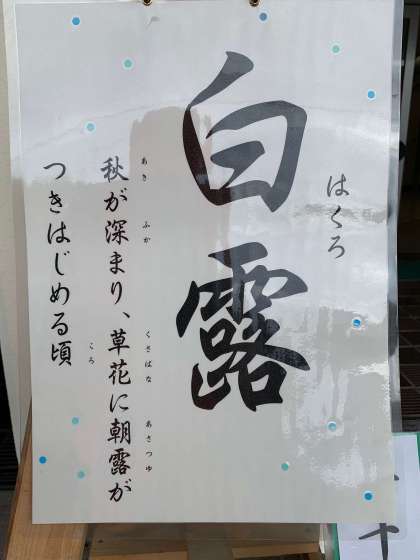 はくろ
白露
秋が深まり、草花に朝露が
あき ふか くさばな あさつゆ
つきはじめる頃
ころ